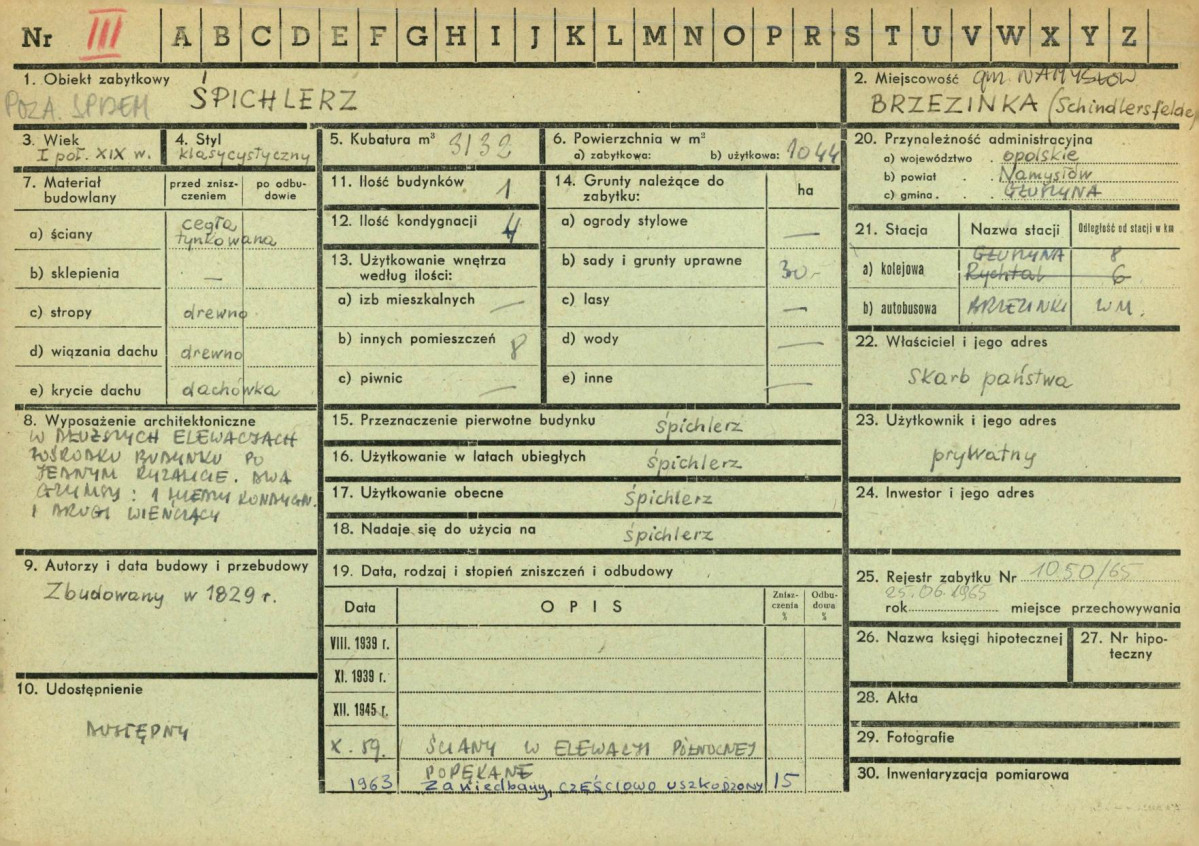 Nr III A B C D E F G H I J K L M N O P R S T U V W X Y Z
1. Obiekt zabytkowy
POZA
ŚPICHLERZ
2. Miejscowość gm. NAMYSŁÓW
BRZEZINKA (Schindlersfelde)
3. Wiek
I poł. XIX w.
4. Styl
klasycystyczny
5. Kubatura m³ 3132
6. Powierzchnia w m²
a) zabytkowa: b) użytkowa: 1044
7. Materiał budowlany
przed znisz-
czeniem
po odbu-
dowie
a) ściany
cegła
tynkowana
b) sklepienia —
c) stropy drewno
d) wiązania dachu drewno
e) krycie dachu dachówka
8. Wyposażenie architektoniczne
W DŁUŻSZYCH ELEWACJACH
POŚRODKU BUDYNKU PO
JEDNYM RYZALICIE. DWA
GZYMSY: 1 MIĘDZY KONDYGN.
I DRUGI WIEŃCZĄCY
9. Autorzy i data budowy i przebudowy
Zbudowany w 1829 r.
10. Udostępnienie
DOSTĘPNY
11. Ilość budynków 1
12. Ilość kondygnacji 4
13. Użytkowanie wnętrza
według ilości:
a) izb mieszkalnych —
b) innych pomieszczeń 8
c) piwnic —
14. Grunty należące do
zabytku:
ha
a) ogrody stylowe —
b) sady i grunty uprawne 30.-
c) lasy —
d) wody —
e) inne —
15. Przeznaczenie pierwotne budynku śpichlerz
16. Użytkowanie w latach ubiegłych śpichlerz
17. Użytkowanie obecne śpichlerz
18. Nadaje się do użycia na śpichlerz
19. Data, rodzaj i stopień zniszczeń i odbudowy
Data OPIS
Znisz-
czenia
%
Odbu-
dowa
%
VIII. 1939 r.
XI. 1939 r.
XII. 1945 r.
X. 59. ŚCIANY W ELEWACJI PÓŁNOCNEJ
POPĘKANE
1963 Zaniedbany, CZĘŚCIOWO USZKODZONY 15
20. Przynależność administracyjna
a) województwo . opolskie
b) powiat . . Namysłów
c) gmina . . GŁUSZYNA
21. Stacja Nazwa stacji Odległość od stacji w km
GŁUSZYNA 8
a) kolejowa Rychtal 6
b) autobusowa BRZEZINKI W M.
22. Właściciel i jego adres
Skarb państwa
23. Użytkownik i jego adres
prywatny
24. Inwestor i jego adres
25. Rejestr zabytku Nr 1050/65
25.06.1965
rok miejsce przechowywania
26. Nazwa księgi hipotecznej
27. Nr hipo-
teczny
28. Akta
29. Fotografie
30. Inwentaryzacja pomiarowa